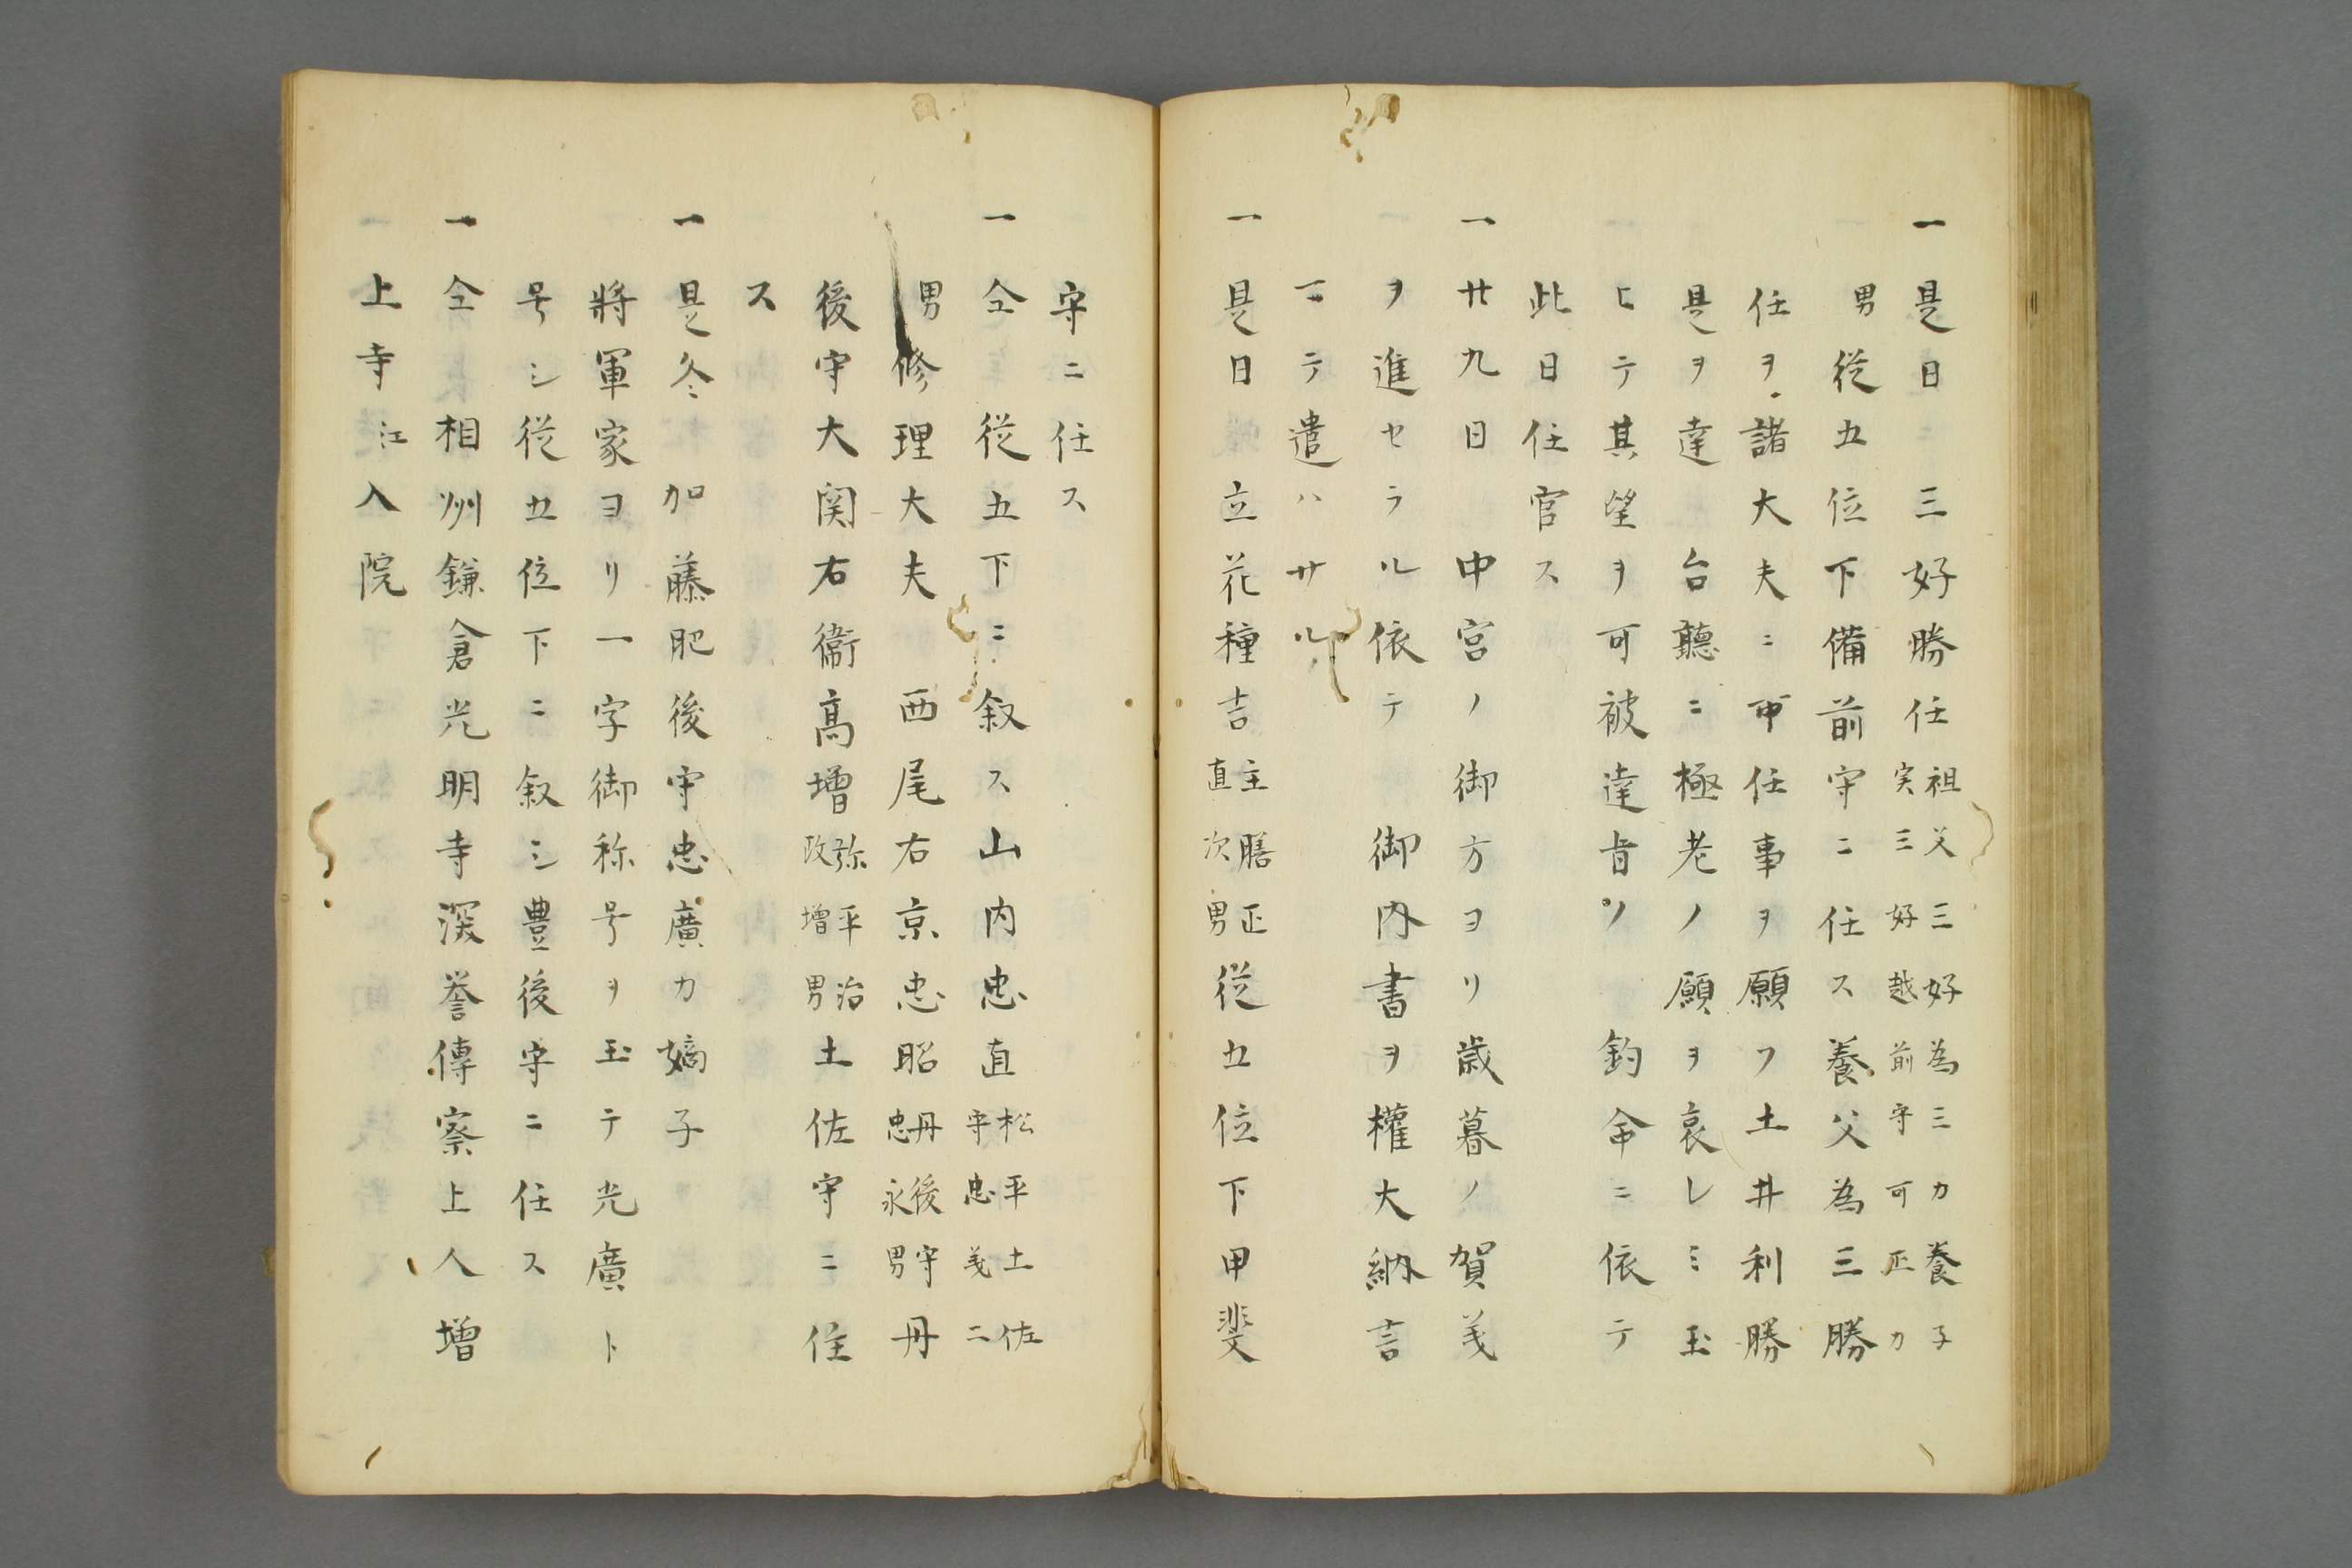 一是日ニ三好勝任祖父三好為三カ養子
実三好越前守可正カ
男従五位下備前守ニ任ス養父為三勝
任ヲ諸大夫ニ可申任事ヲ願フ土井利勝
是ヲ達 台聽ニ極老ノ願ヲ哀レミ玉
ヒテ其望ヲ可被達旨ノ 鈞命ニ依テ
此日任官ス
一廿九日 中宮ノ御方ヨリ歳暮ノ賀義
ヲ進セラル依テ 御内書ヲ權大納言
ニテ遣ハサル
一是日立花種吉主膳正
直次男従五位下甲斐
守ニ任ス
一仝従五下ニ叙ス山内忠直松平土佐
守忠義二
男修理大夫 西尾右京忠昭丹後守
忠永男丹
後守大関右衞髙増弥平治
政増男土佐守ニ任
ス
一是冬加藤肥後守忠廣カ嫡子
將軍家ヨリ一字御称号ヲ玉テ光廣ト
号シ従五位下ニ叙シ豊後守ニ任ス
一仝相州鎌倉光明寺深誉傳察上人増
上寺江入院